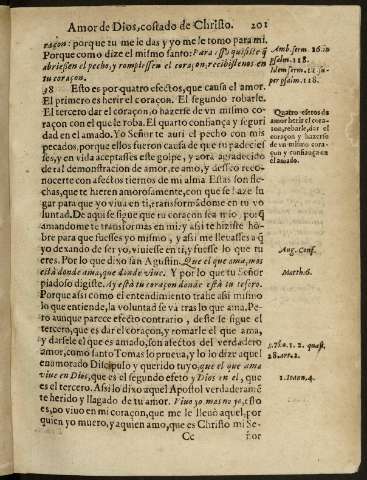 Amor de Dios, costado de Christo. 201
raçon: porque tu me le das y yo me le tomo para mi.
Porque como dize el mismo santo: Para esso quisiste q̃
abriessen el pecho, y rompiessen el coraçon, recibistenos en
tu coraçon.
Amb. serm. 16. in
psalm. 118.
Idem serm. 12. su-
per psalm. 118.
38 Esto es por quatro efectos, que causa el amor.
El primero es herir el coraçon. El segundo robarle.
El tercero dar el coraçon, o hazerse de vn mismo co-
raçon con el que le roba. El quarto confiança y seguri
dad en el amado. Yo Señor te auri el pecho con mis
pecados, porque ellos fueron causa de que tu padecies
ses, y en vida aceptasses este golpe, y aora agradecido
de tal demonstracion de amor, te amo, y desseo reco-
nocerte con afectos tiernos de mi alma Estas son fle-
chas, que te hieren amorosamente, con que se haze lu
gar para que yo viua en ti, transformãdome en tu vo
luntad. De aqui se sigue que tu coraçon sea mio, porq̃
amandome te transformas en mi: y assi te hiziste hõ-
bre para que fuesses yo mismo, y assi me lleuasses a q̃
yo dexando de ser yo, viuiesse en ti, y fuesse lo que tu
eres. Por lo que dixo san Agustin. Que el que ama, mas
està donde ama, que donde viue. Y por lo que tu Señor
piadoso digiste. Ay està tu coraçon donde està tu tesoro.
Quatro efetos de
amor herir el cora-
çon, robarle, dar el
coraçon y hazerse
de vn mismo cora-
çon y confiança en
el amado.
Aug. Conf.
Matth. 6.
Porque assi como el entendimiento trahe assi mismo
lo que entiende, la voluntad se và tras lo que ama. Pe-
ro aunque parece efecto contrario, deste se sigue el
tercero, que es dar el coraçon, y romarle el que ama,
y darsele el que es amado, son afectos del verdadero
amor, como santo Tomas lo prueua, y lo lo dize aquel
enamorado Discipulo y querido tuyo, que el que ama
viue en Dios, que es el segundo efeto y Dios en el, que
es el tercero. Assi lo dixo aquel Apostol verdaderamẽ
te herido y llagado de tu amor. Viuo yo mas no yo, esto
es, no viuo en mi coraçon, que me le lleuò aquel, por
quien yo muero, y aquien amo, que es Christo mi Se-
S. Tho. 1. 2. quæst.
28. art. 2.
1. Ioan. 4.
Cc ñor